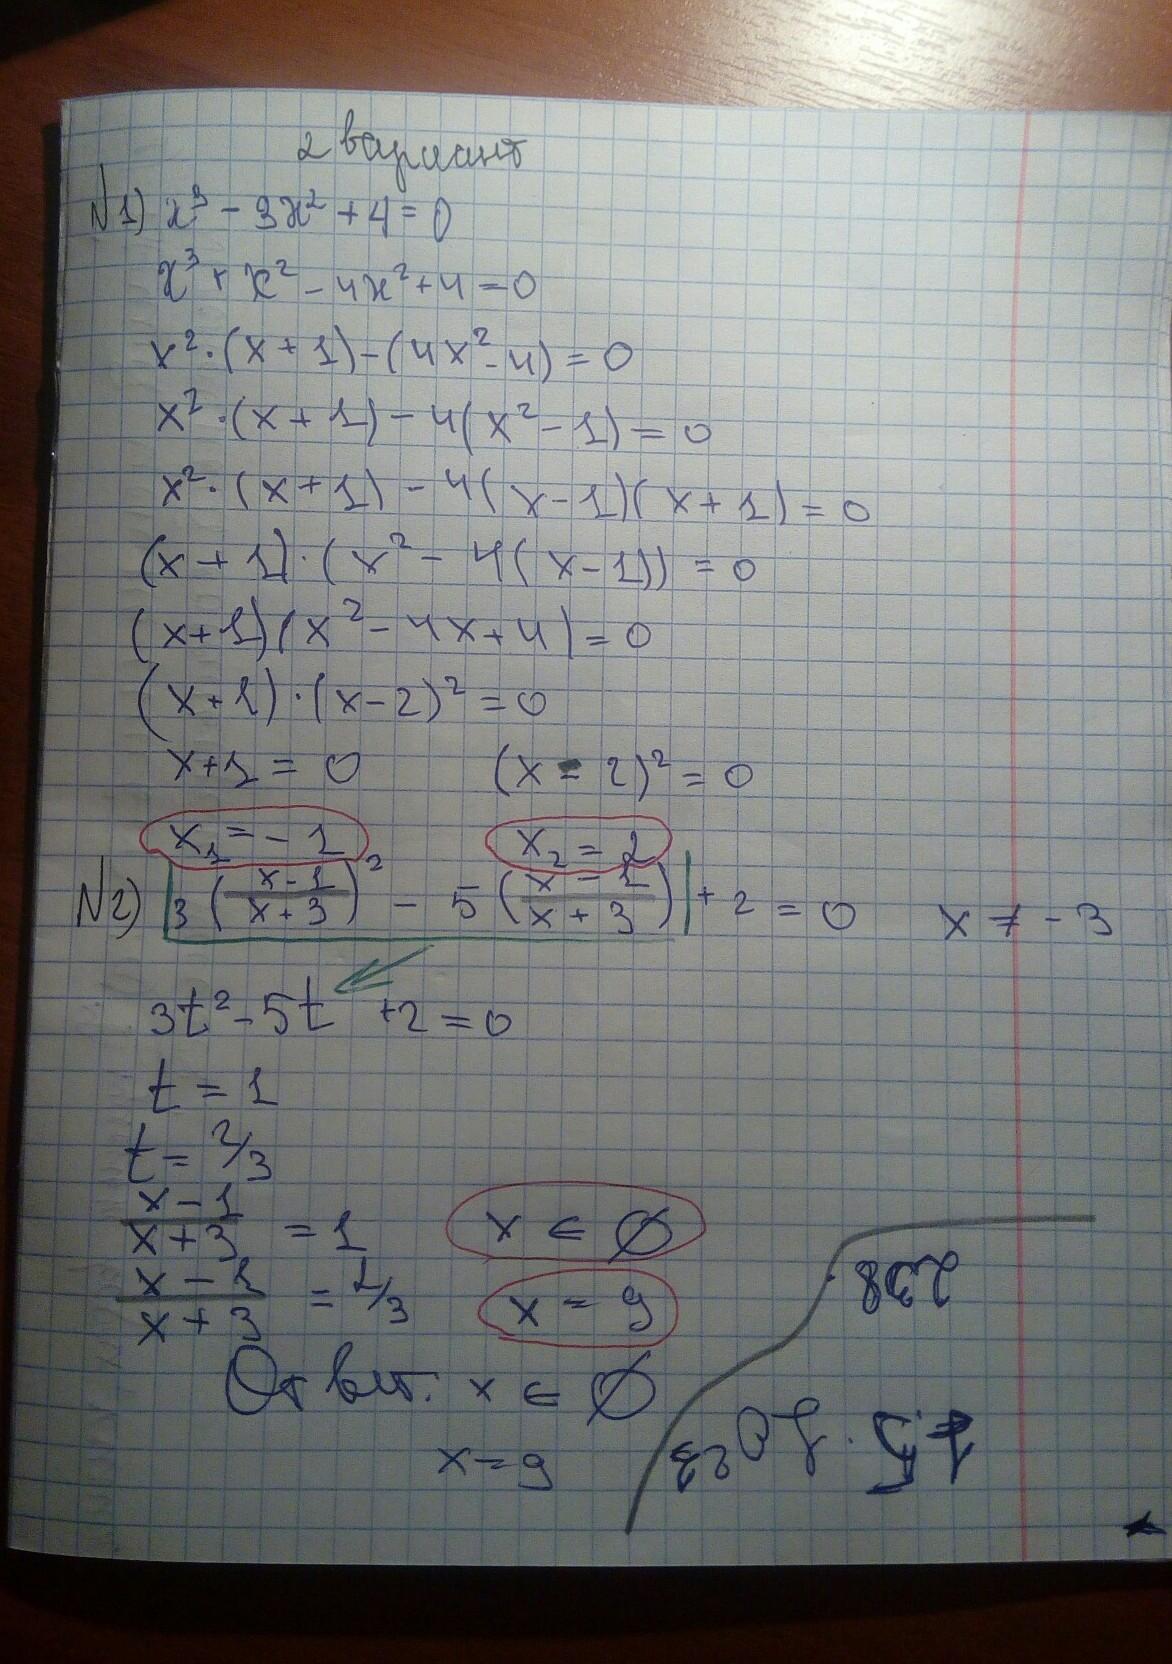 2 вариант
N1) x³ - 3x² + 4 = 0
x³ + x² - 4x² + 4 = 0
x² · (x + 1) - (4x² - 4) = 0
x² · (x + 1) - 4(x² - 1) = 0
x² · (x + 1) - 4(x - 1)(x + 1) = 0
(x + 1) · (x² - 4(x - 1)) = 0
(x + 1)(x² - 4x + 4) = 0
(x + 1) · (x - 2)² = 0
x + 1 = 0 (x - 2)² = 0
x₁ = - 1 x₂ = 2
N2) 3 ((x - 1)/(x + 3))² - 5 ((x - 1)/(x + 3)) + 2 = 0 x ≠ - 3
3t² - 5t + 2 = 0
t = 1
t = 2/3
(x - 1)/(x + 3) = 1 x ∈ ∅
(x - 1)/(x + 3) = 2/3 x = 9
Ответ: x ∈ ∅
x = 9
238